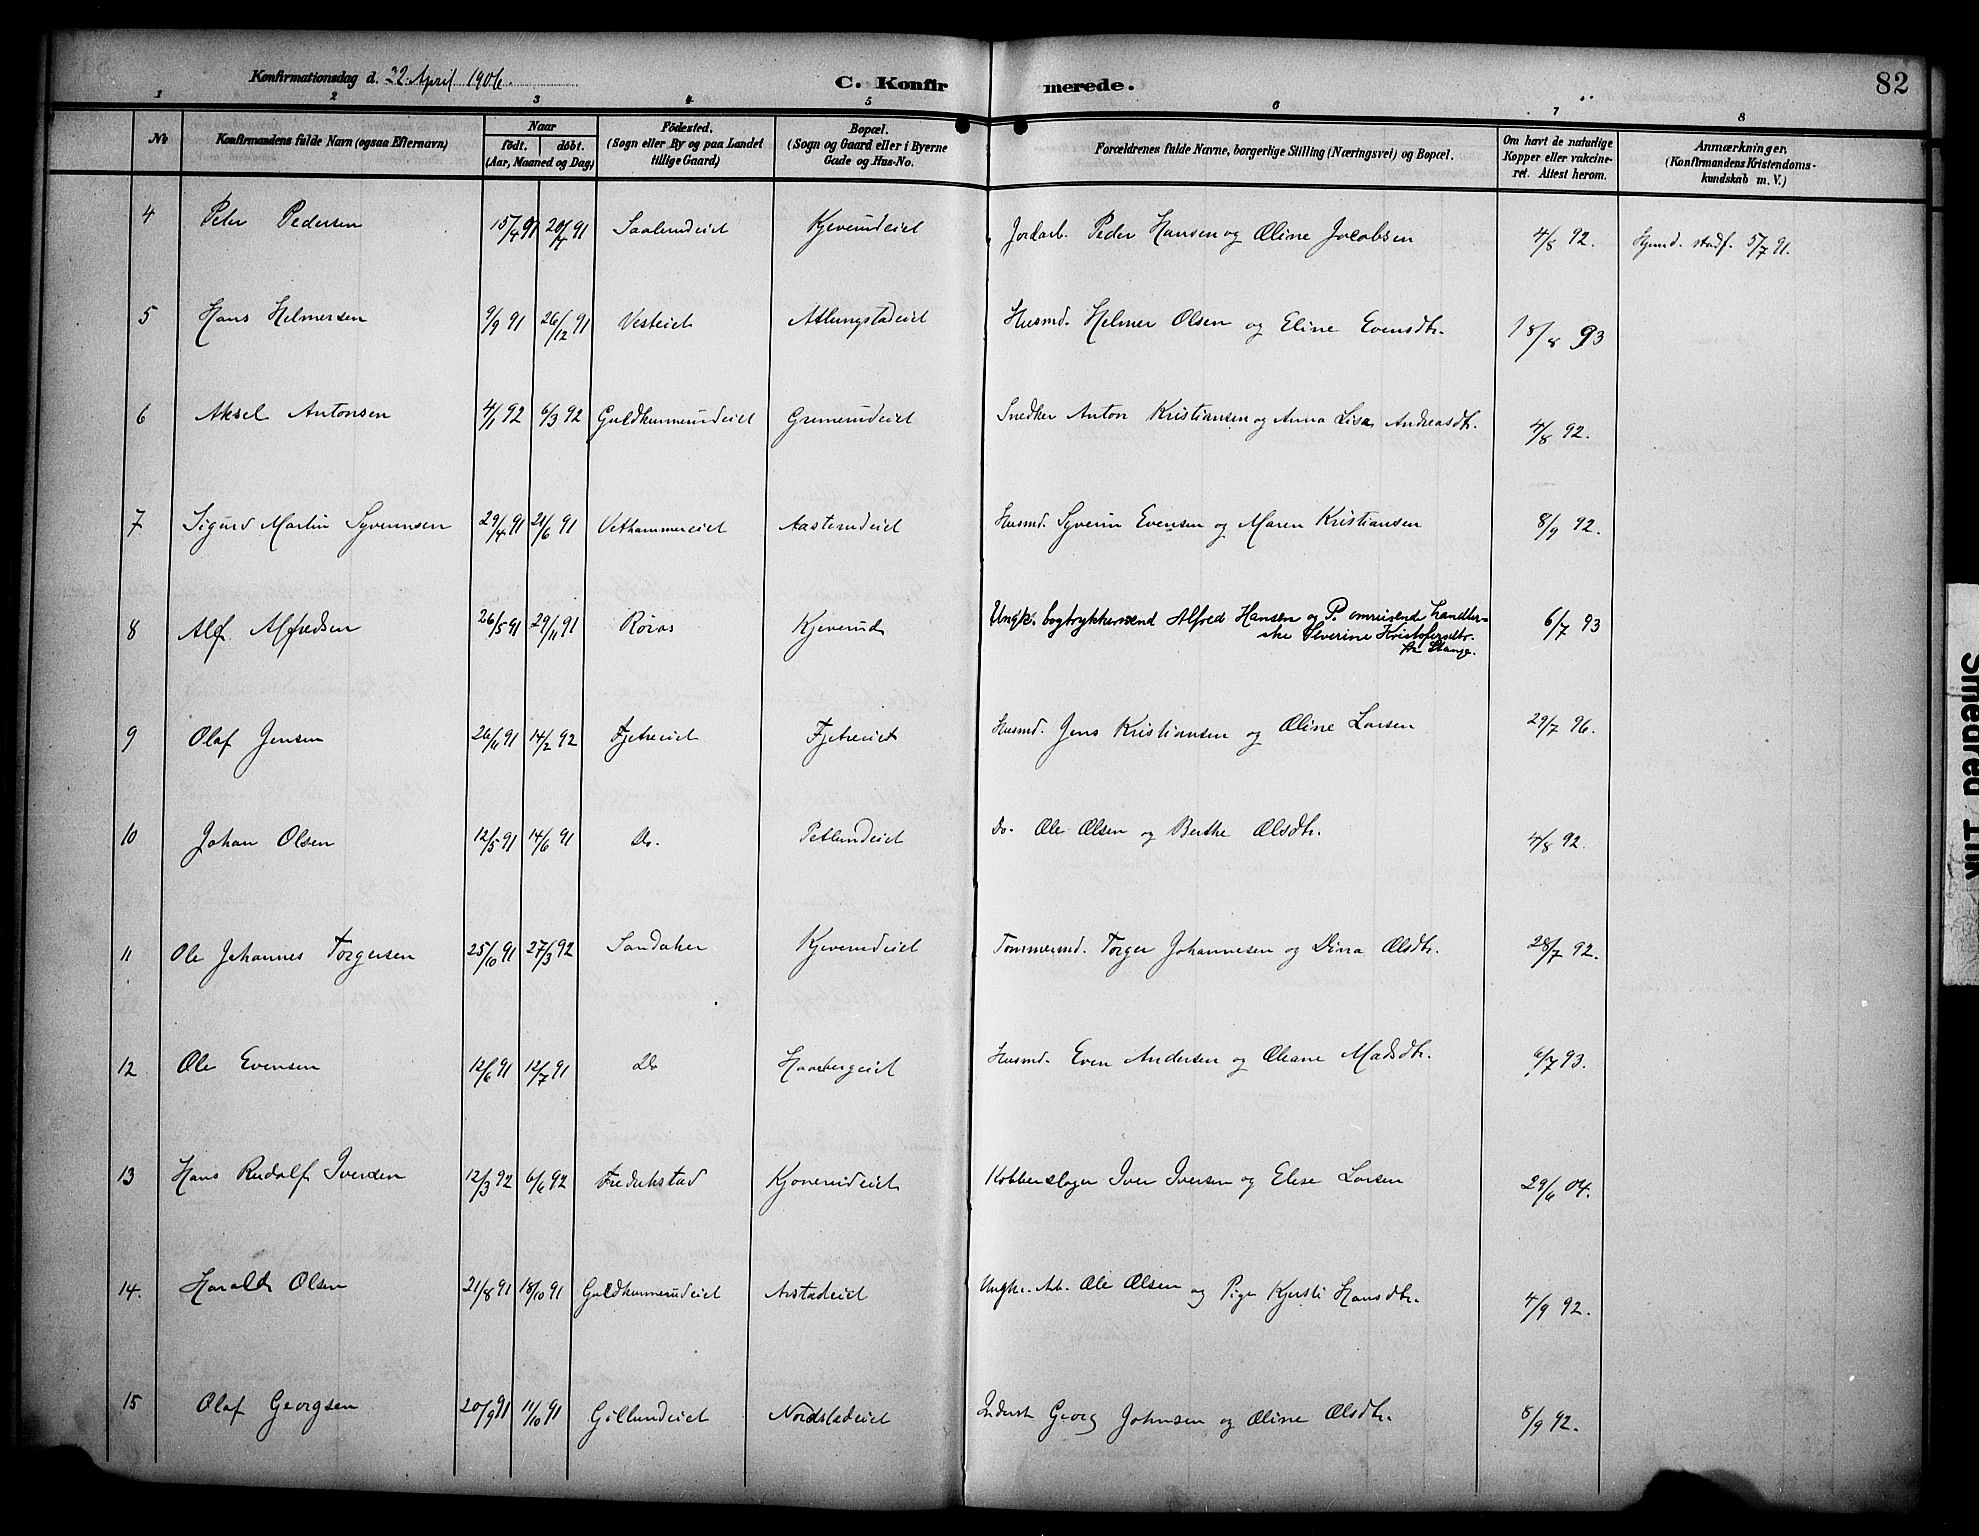 Konfirmationsdag d. 22. April 1906.
C. Konfirmerede.
82
1 2 3 4 5 6 7 8
No
Konfirmandens fulde Navn (ogsaa Efternavn)
Naar
født. døbt.
(Aar, Maaned og Dag)
Födested.
(Sogn eller By og paa Landet
tillige Gaard)
Bopæl.
(Sogn og Gaard eller i Byerne
Gade og Hus-No.
Forældrenes fulde Navne, borgerlige Stilling (Næringsvei) og Bopæl.
Om havt de naturlige
Kopper eller vakcine-
ret. Attest herom.
Anmærkninger.
(Konfirmandens Kristendoms-
kundskab m. V.)
4 Peter Pedersen 15/4 91 20/4 91 Saalerudeiet Kjeverudeiet Jordarb. Peder Hansen og Oline Jacobsen 4/8 92. Hjemd. stadf. 5/7 91.
5 Hans Helmersen 9/9 91 26/12 91 Vesteiet Atlungstadeiet Husmd. Helmer Olsen og Eline Evensdtr. 18/8 93
6 Aksel Antonsen 4/1 92 6/3 92 Guldkunnerudeiet Grimerudeiet Snedker Anton Kristiansen og Anna Lisa Andreasdtr. 4/8 92.
7 Sigurd Martin Syverinsen 29/4 91 21/6 91 Vethammereiet Aasterudeiet Husmd. Syverin Evensen og Maren Kristiansen 8/9 92.
8 Alf Alfredsen 26/5 91 29/11 91 Røros Kjeverud Ungk. bogtrykkersvend Alfred Hansen og P. omreisende handler-
ske Severine Kristofersdtr.
fra Stange. 6/7 93
9 Olaf Jensen 26/11 91 14/2 92 Fjetreeiet Fjetreeiet Husmd. Jens Kristiansen og Oline Larsen 29/7 96.
10 Johan Olsen 12/5 91 14/6 91 Do. Petlundeiet Do. Ole Olsen og Berthe Olsdtr. 4/8 92.
11 Ole Johannes Torgersen 25/10 91 27/3 92 Sandaker Kjeverudeiet Tømmermd. Torger Johannesen og Dina Olsdtr. 28/7 92.
12 Ole Evensen 12/6 91 12/7 91 Do Haarbergeiet Husmd. Even Andersen og Oleane Madsdtr. 6/7 93.
13 Hans Rudolf Iversen 12/3 92 6/6 92 Fredrikstad Kjonerudeiet Kobberslager Iver Iversen og Elise Larsen 29/6 04.
14. Harald Olsen 21/8 91 18/10 91 Guldkunnerudeiet Arstadeiet Ungkr. Arb. Ole Olsen og Pige Kjersti Hansdtr. 4/9 92.
15 Olaf Georgsen 20/9 91 11/10 91 Gillundeiet Nordstadeiet Inderst Georg Johnsen og Oline Olsdtr. 8/9 92.
Smedrud 1.lik